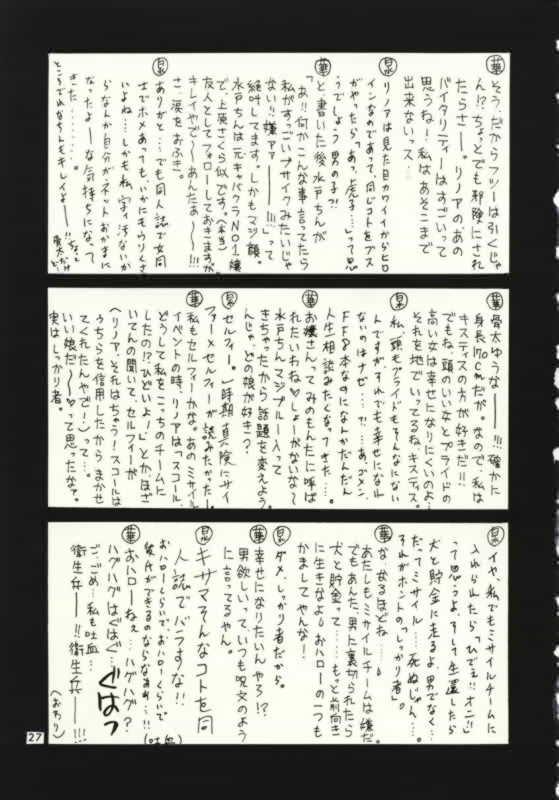 華 そう、だからフツーは引くじゃ
ん!?ちょっとでも邪険にされ
たらさー。リノアのあの
バイタリティーはすごいって
思うね。私はあそこまで
出来ないっス…
昂 リノアは見た目カワイイからヒロ
インなのであって、同じコトをブス
がやったら「あっ虎子…」って思
うでしょう男の子!?
華 と書いた後水戸ちんが
「あ!!何かこんな事言ってたら
私がすっごいブサイクみたいじゃ
ない!!嫌アァーー!!!」って
絶叫してます。しかもマジ顔。
水戸ちんは元キャバクラNO1嬢
で、上原さくら似です。(本当)
友人としてフォローしておきますが
キレイやで〜あんたぁ〜!!!
さ、涙をおふき。
昂 ありがと…でも同人誌で女同
士でホメあっても、いかにもつくりくさ
いよね…しかも私実汚ないか
らなんか自分がネットおかまに
なったよーな気持ちになって
きた………
ところでれなちんもキレイよーー!!
華 骨太ゆうなーー!!!確かに
身長170cmだが。なので、私は
キスティスの方が好きだ!!
でもね、頭のいい女とプライドの
高い女は幸せになりにくいのよ…
それを地でいってるね、キスティス。
昂 私、頭もプライドもそんなにない
んですがそれでも幸せになれ
ないのはナゼ…?…あ、ゴメン
FF8本なのになんかだんだん
人生相談みたくなってきた…。
華 お嬢さんってみのもんたに呼ば
れたいわね♡しょーがないな〜
水戸ちんマジブルー入って
きちゃったから話題を変えよう。
んじゃ、どの娘が好き?
昂 セルフィー。一時期真険にサイ
ファー×セルフィーが読みたかった!
華 私もセルフィーかな。あのミサイル
イベントの時、リノアは「スコール、
どうして私をこっちのチームに
したの!?ひどいよ!」とかほざ
いてんの聞いて、セルフィーが
「リノア、それはちゃう!スコールは
うちらを信用したからまかせ
てくれたんやでー!」って…。
いい娘だ〜♡って思ったなァ。
実はしっかり者。
昂 イヤ、私でもミサイルチームに
入れられたら「ひでェ!!オニ!!」
って思うよ。そして生還したら
犬と貯金に走るよ、男でなく…
だってミサイル…死ぬじゃん…。
それがホントの「しっかり者」。
華 な、なるほどね…
あたしもミサイルチームは嫌だ。
でもあんた、男に裏切られたら
犬と貯金って……もっと前向き
に生きなよ!おハローの一つも
かましてやんな!
昂 ダメ、しっかり者だから。
華 幸せになりたいんやろ!?
男欲しいって、いつも呪文のよう
に言ってるやん。
昂 キサマそんなコトを同
人誌でバラすな!!
おハローしらいで、おハローくらいで
彼氏ができるのならなぁぁ…!!(吐血)
華 おハローねぇ…ハグハグ?
ハグハグはぐはぐ…ぐはっ
ごごめ…私も吐血…
衛生兵ーー!!衛生兵ーー!!!
(おわり)
27